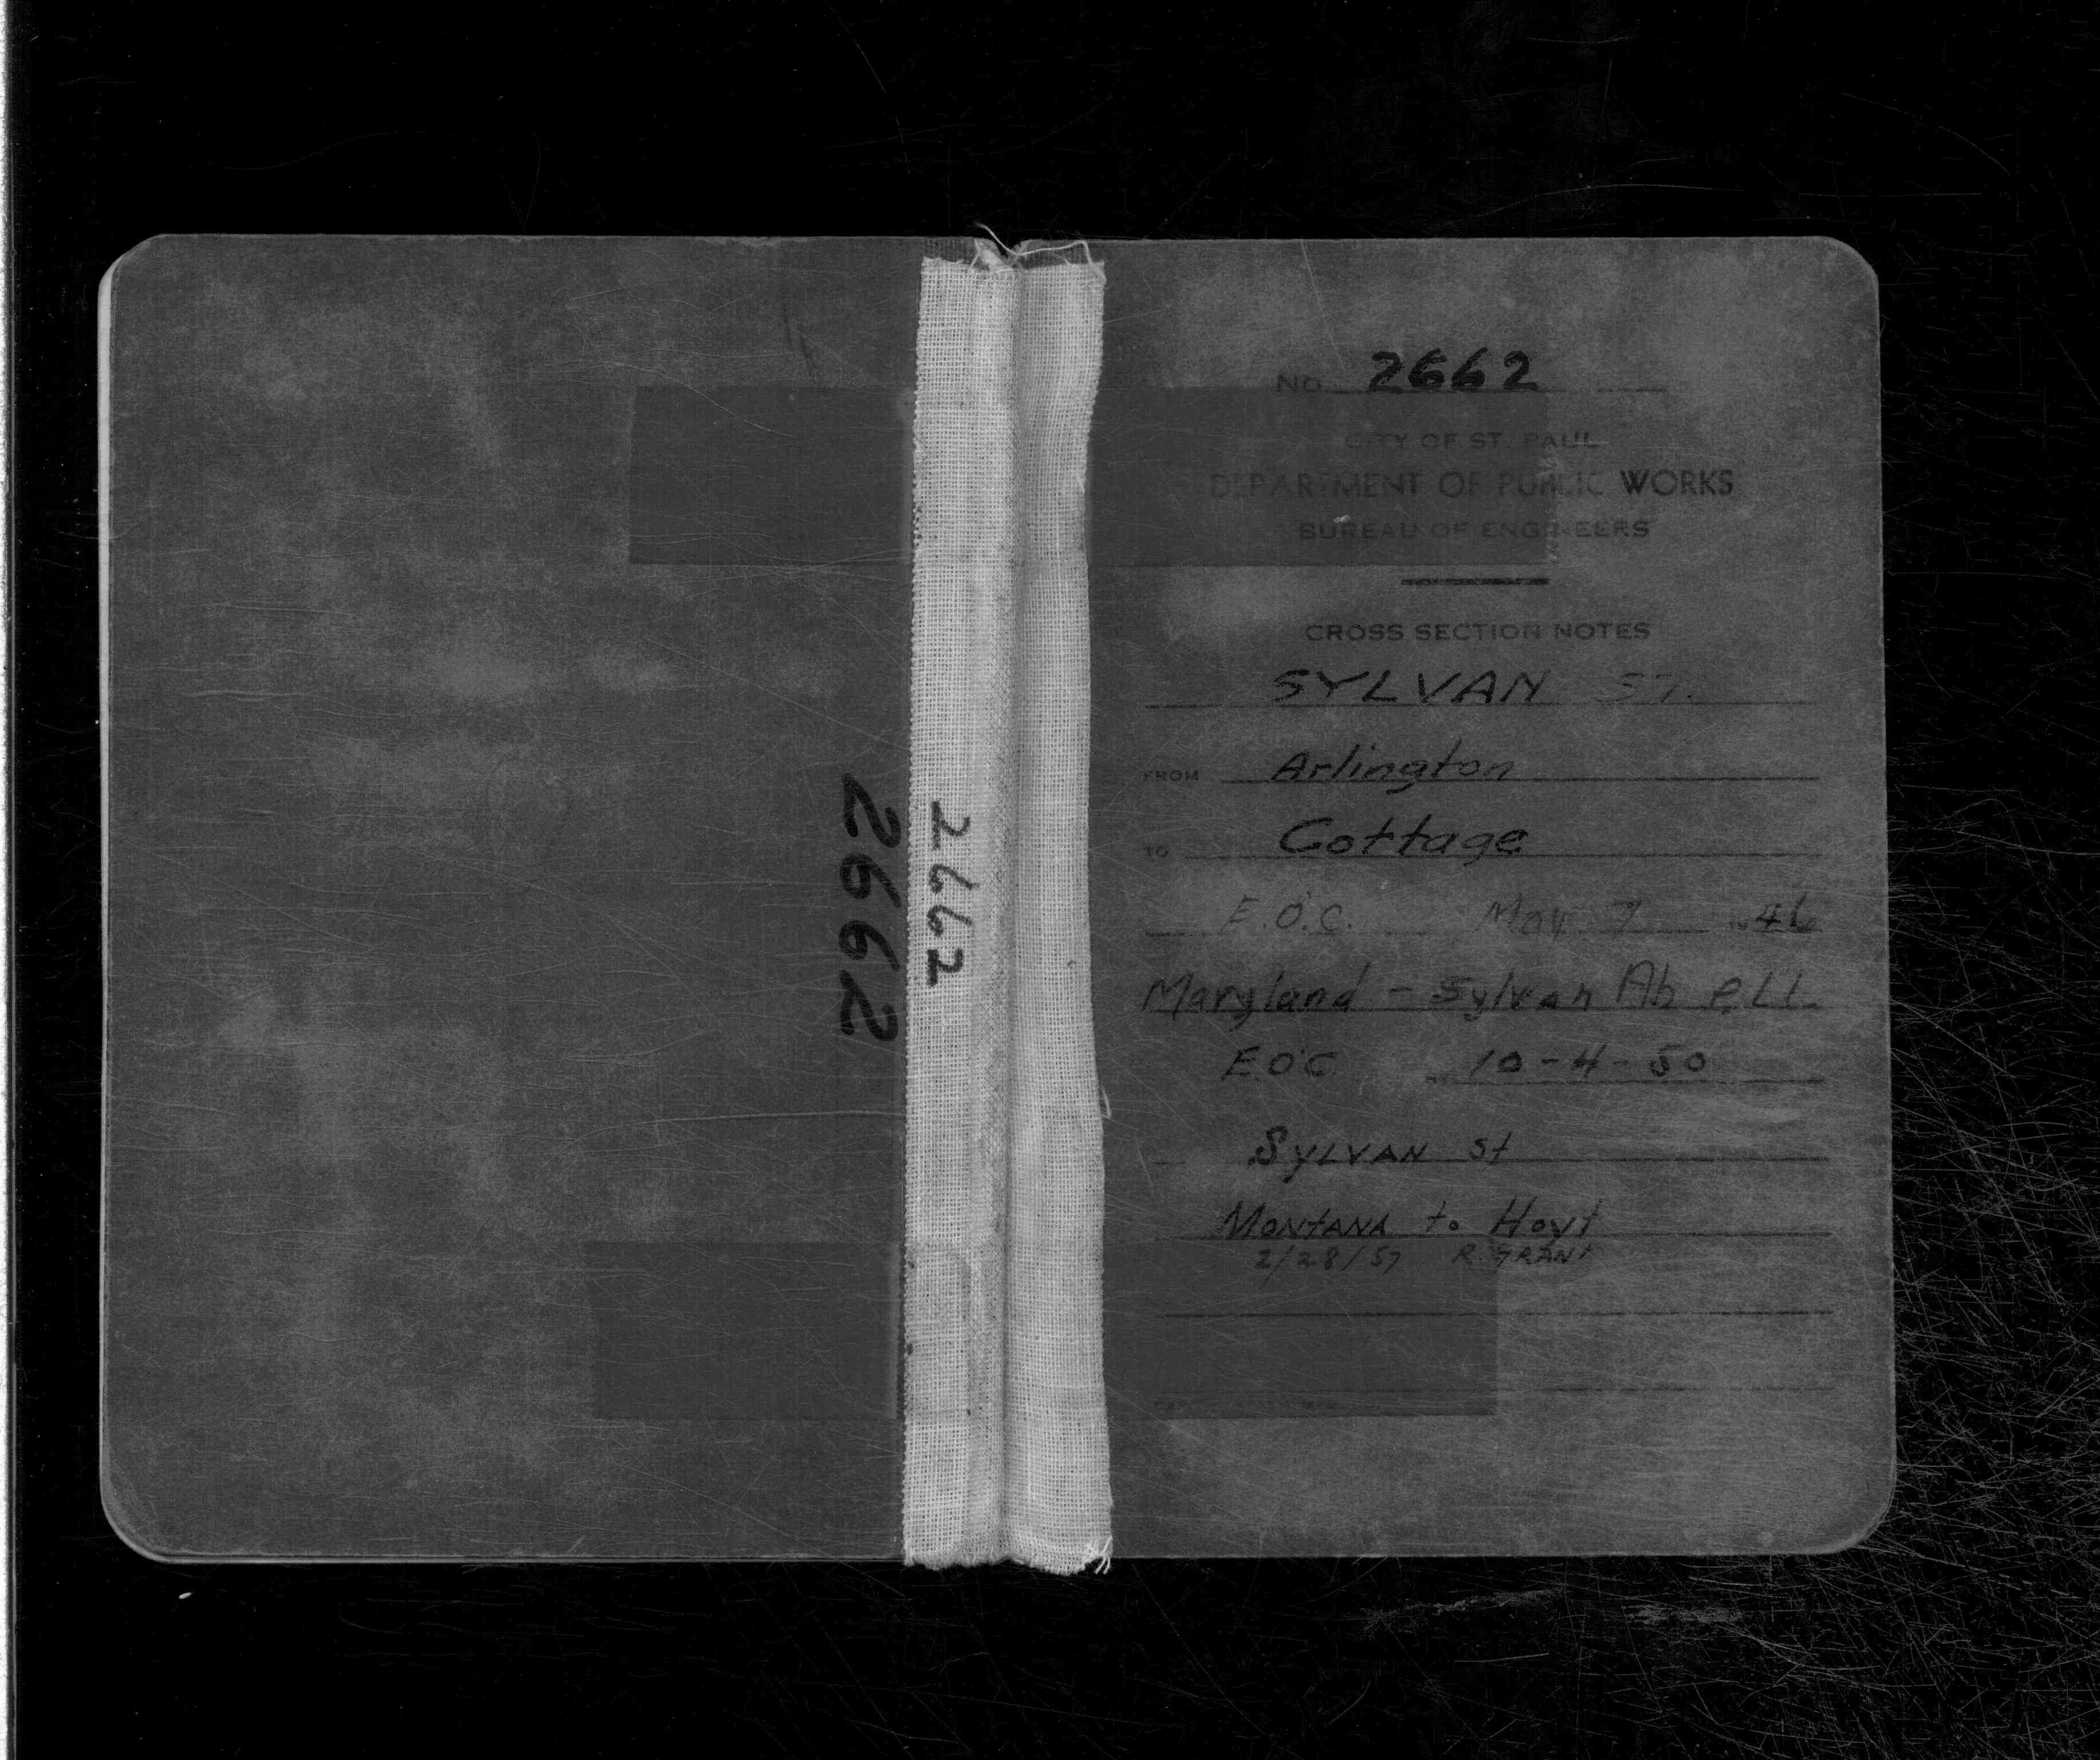 2662
2662
No. 2662
CITY OF ST. PAUL
DEPARTMENT OF PUBLIC WORKS
BUREAU OF ENGINEERS
CROSS SECTION NOTES
SYLVAN ST.
FROM Arlington
TO Cottage
E.O.C. May 7 1946
Maryland - Sylvan Ab ell
EOC BY 10-4-50
SYLVAN St
MONTANA to Hoyt
2/28/57 R. GRANT